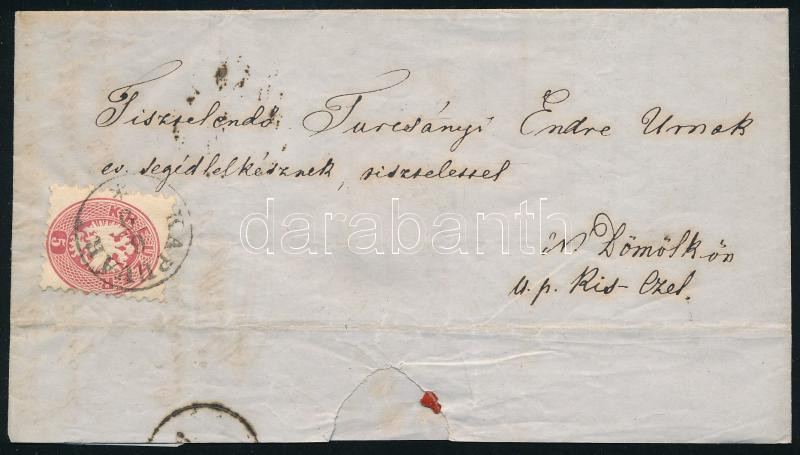 Tisztelendő Turcsányi Endre Urnak
ev. segédlelkésznek, tisztelettel
N Dömölkön
u. p. Kis-Czel.
5 KREUZER
KAPUVÁR
darabanth